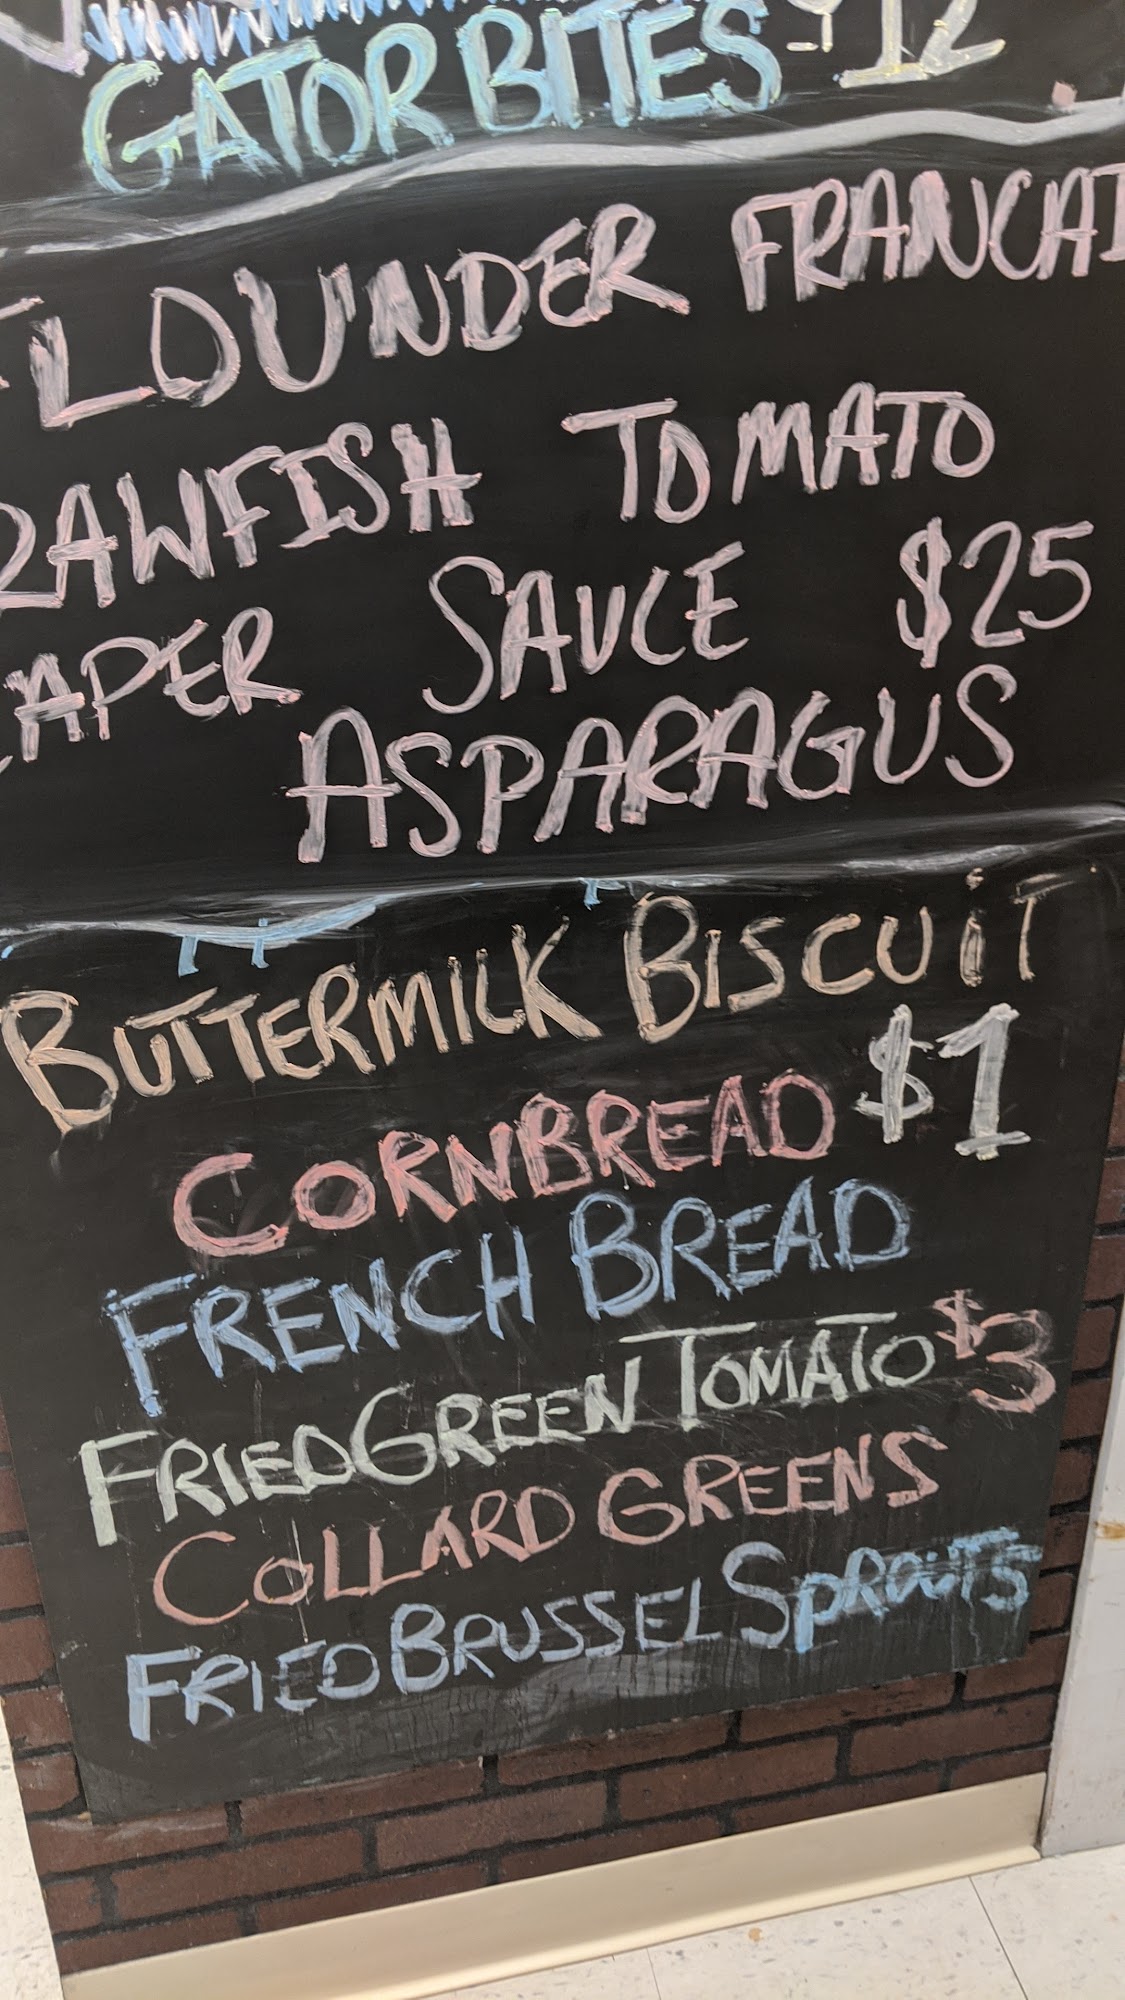 GATOR BITES $12
FLOUNDER FRANCAI
RAWFISH TOMATO
CAPER SAUCE $25
ASPARAGUS
BUTTERMILK BISCUIT
$1
CORNBREAD
FRENCH BREAD
FRIED GREEN TOMATO $3
COLLARD GREENS
FRIED BRUSSEL SPROUTS